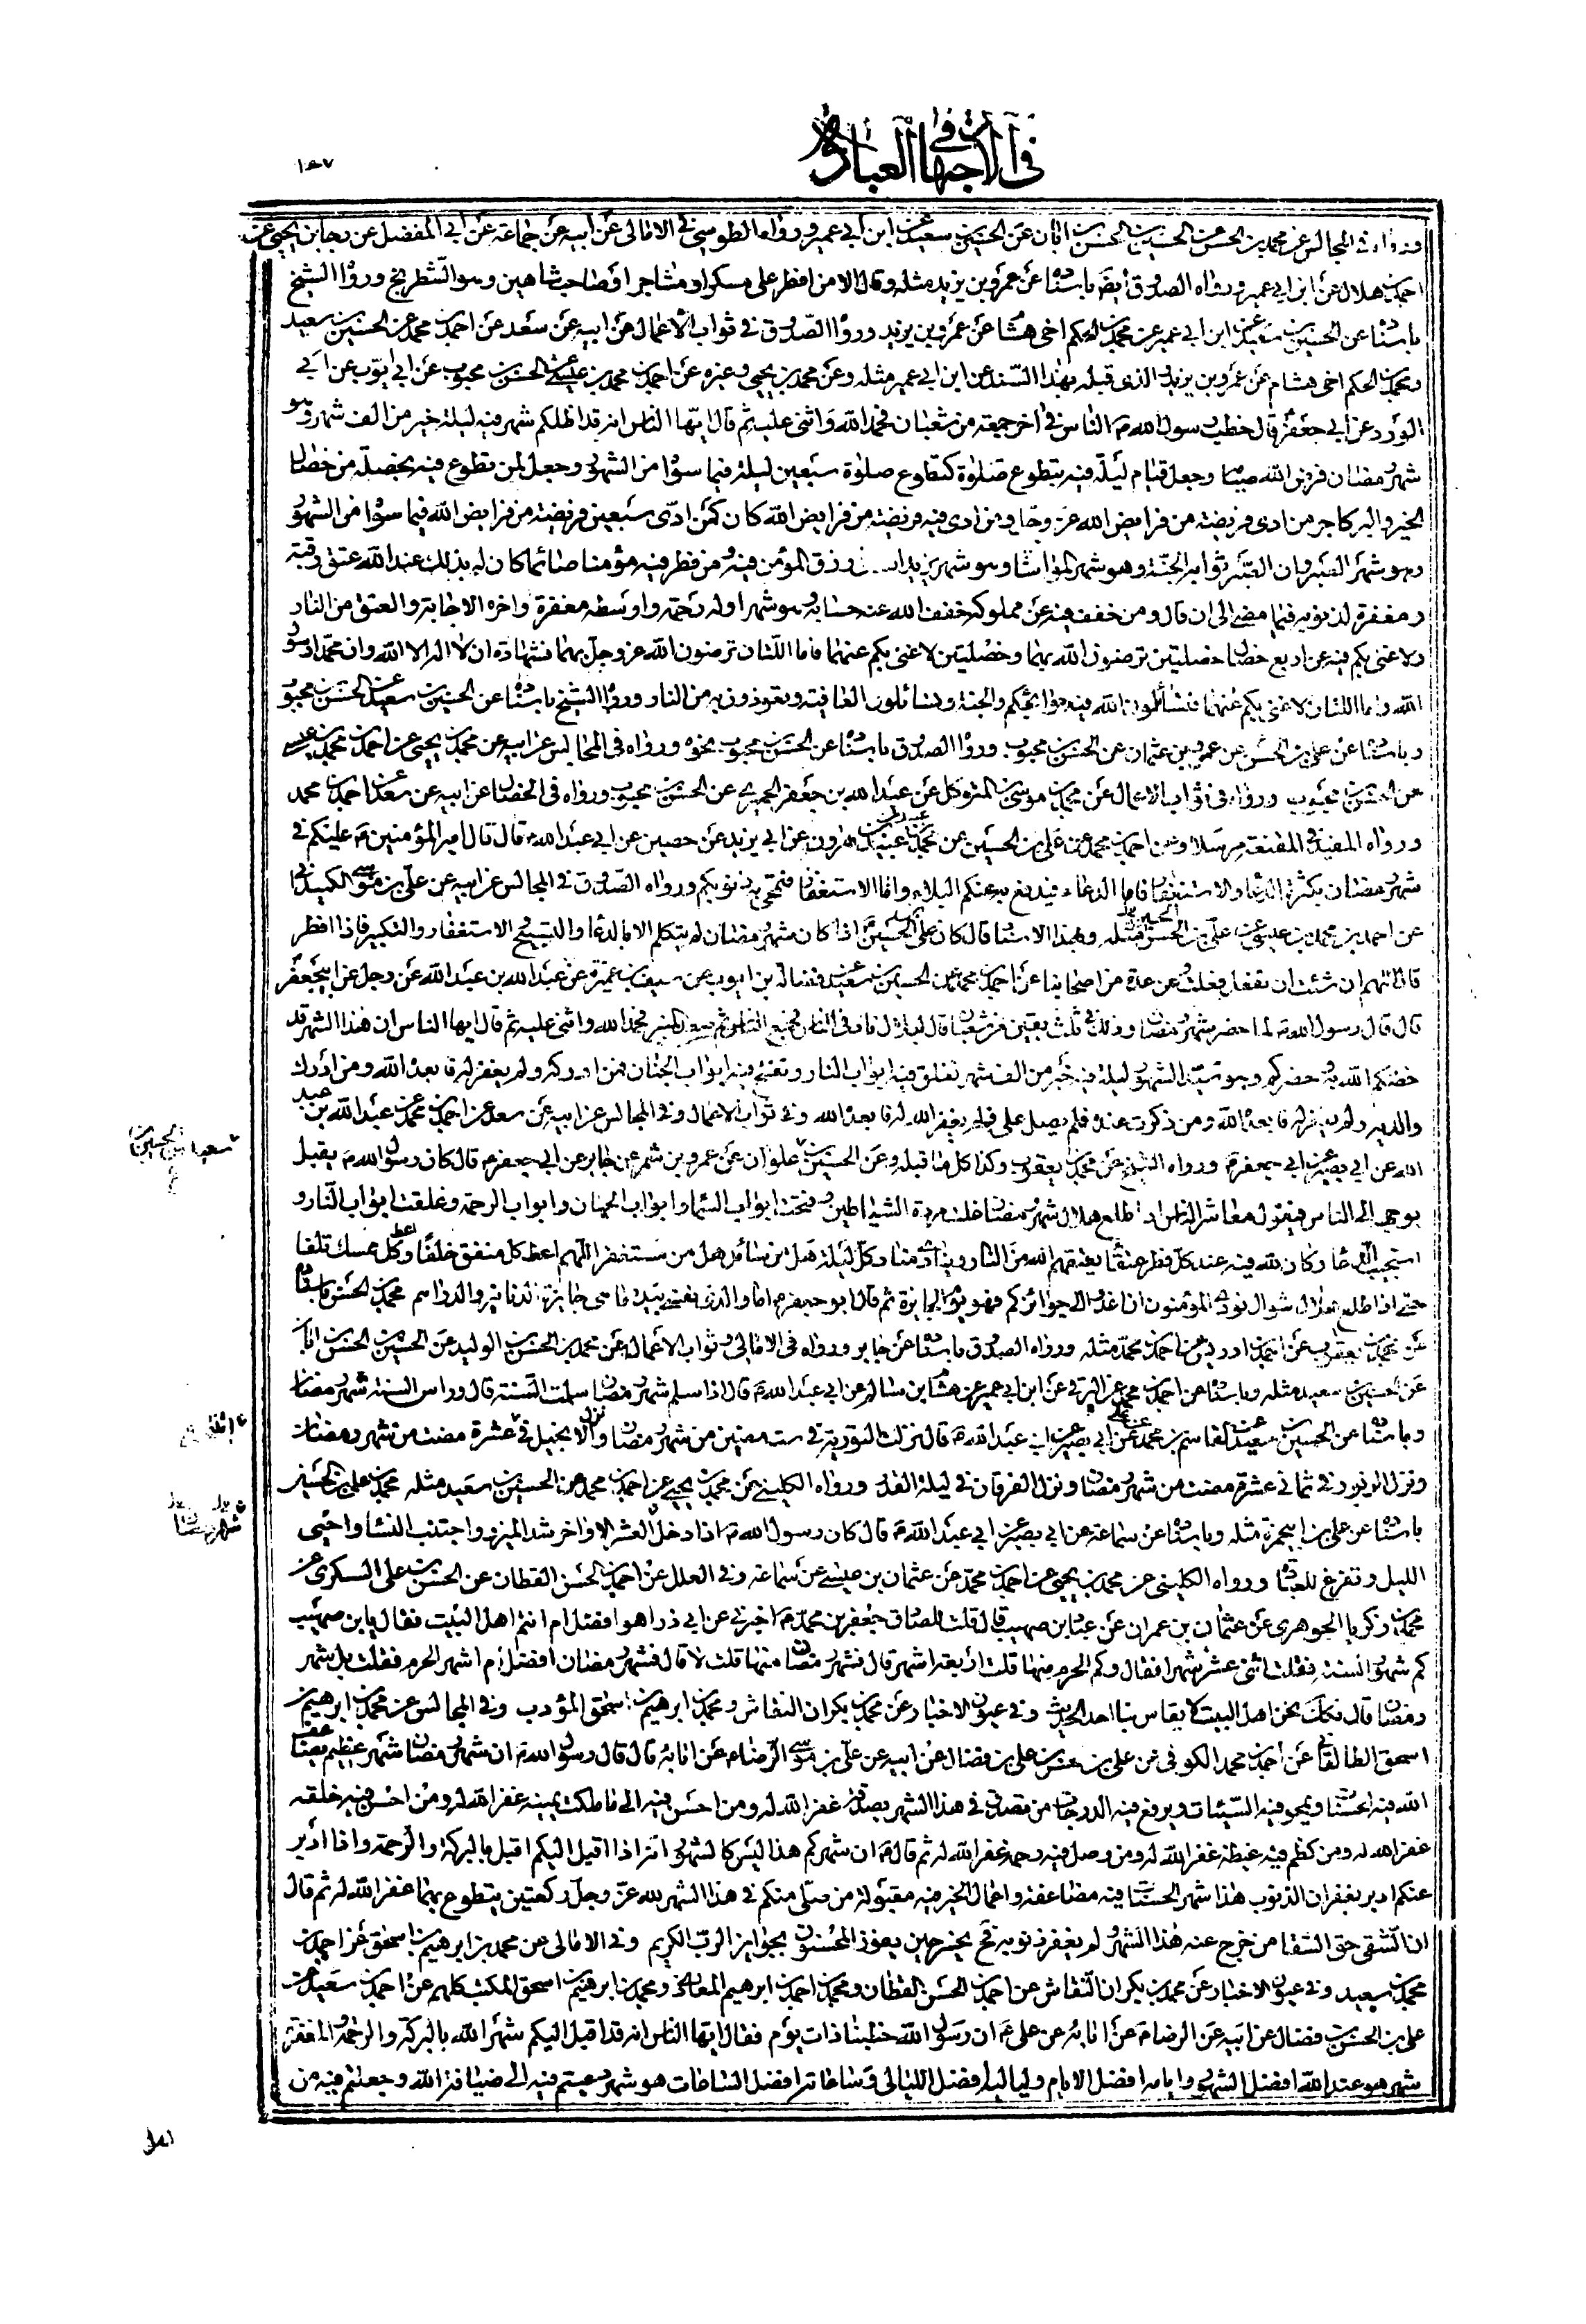 في الاجتهاد في العبادة
ورواه في المجالس عن محمد بن الحسن عن الحسين بن الحسن بن ابان عن الحسين بن سعيد عن ابن ابي عمير ورواه الطوسي في الامالي عن ابيه عن جماعة عن ابي المفضل عن رجا بن يحيى عن
احمد بن هلال عن ابن ابي عمير ورواه الصدوق ايضا باسناده عن عمرو بن يزيد مثله وقال الا من افطر على مسكر او مشاجر او صاحب شاهين وهو الشطرنج ورواه الشيخ
باسناده عن الحسين بن سعيد عن ابن ابي عمير عن محمد بن الحكم اخى هشام عن عمرو بن يزيد ورواه الصدوق في ثواب الاعمال عن ابيه عن سعد عن احمد بن محمد عن الحسين بن سعيد
ومحمد بن الحكم اخى هشام عن عمرو بن يزيد الذى قبله بهذا السند عن ابن ابي عمير مثله وعن محمد بن يحيى وغيره عن احمد بن محمد بن عيسى عن الحسن بن محبوب عن ابي ايوب عن ابي
الورد عن ابي جعفر قال خطب رسول الله ص الناس في اخر جمعة من شعبان فحمد الله واثنى عليه ثم قال ايها الناس انه قد اظلكم شهر فيه ليلة خير من الف شهر وهو
شهر رمضان فرض الله صيامه وجعل قيام ليلة فيه بتطوع صلوة كتطوع صلوة سبعين ليلة فيما سواه من الشهور وجعل لمن تطوع فيه بخصلة من خصال
الخير والبر كاجر من ادى فريضة من فرايض الله عز وجل ومن ادى فيه فريضة من فرايض الله كان كمن ادى سبعين فريضة من فرايض الله فيما سواه من الشهور
وهو شهر الصبر وان الصبر ثوابه الجنة وهو شهر المواساة وهو شهر يزيد الله في رزق المؤمن فيه ومن فطر فيه مؤمنا صائما كان له بذلك عند الله عتق رقبة
ومغفرة لذنوبه فيما مضى الى ان قال ومن خفف فيه عن مملوكه خفف الله عنه حسابه وهو شهر اوله رحمة واوسطه مغفرة واخره الاجابة والعتق من النار
ولا غنى بكم فيه عن اربع خصال خصلتين ترضون الله بهما وخصلتين لا غنى بكم عنهما فاما اللتان ترضون الله عز وجل بهما فشهادة ان لا اله الا الله وان محمدا رسول
الله واما اللتان لا غنى بكم عنهما فتسألون الله فيه حوائجكم والجنة وتسائلون العافية وتعوذون به من النار ورواه الشيخ باسناده عن الحسين بن سعيد عن الحسن بن محبوب
وباسناده عن على بن الحسن عن عمرو بن عثمان عن الحسن بن محبوب ورواه الصدوق باسناده عن الحسن بن محبوب نحوه ورواه في المجالس عن ابيه عن محمد بن يحيى عن احمد بن محمد بن عيسى
عن الحسن بن محبوب ورواه في ثواب الاعمال عن محمد بن موسى بن المتوكل عن عبد الله بن جعفر الحميرى عن الحسن بن محبوب ورواه في الخصال عن ابيه عن سعد عن احمد بن محمد
ورواه المفيد في المقنعة مرسلا وعن احمد بن محمد عن على بن الحسين عن محمد بن عبيد هارون عن ابي يزيد عن حصين عن ابي عبد الله ع قال قال امير المؤمنين ع عليكم في
شهر رمضان بكثرة الدعاء والاستغفار فاما الدعاء فيدفع به عنكم البلاء واما الاستغفار فتمحى به ذنوبكم ورواه الصدوق في المجالس عن ابيه عن على بن موسى الكميداني
عن احمد بن محمد بن عيسى عن على بن الحسن مثله وبهذا الاسناد قال كان على بن الحسين ع اذا كان شهر رمضان لم يتكلم الا بالدعاء والتسبيح والاستغفار والتكبير فاذا افطر
قال اللهم ان شئت ان تفعل فعلت وعن عدة من اصحابنا عن احمد بن محمد عن الحسين بن سعيد عن فضالة بن ايوب عن سيف بن عميرة عن عبد الله بن عبد الله عن رجل عن ابي جعفر
قال قال رسول الله ص لما حضر شهر رمضان وذلك في ثلث بقين من شعبان قال لبلال ناد في الناس فجمع الناس ثم صعد المنبر فحمد الله واثنى عليه ثم قال ايها الناس ان هذا الشهر قد
خصكم الله به وحضركم وهو سيد الشهور ليلة فيه خير من الف شهر تغلق فيه ابواب النار وتفتح فيه ابواب الجنان فمن ادركه ولم يغفر له فابعده الله ومن ادرك
والديه ولم يغفر له فابعده الله ومن ذكرت عنده فلم يصل على فلم يغفر الله له فابعده الله وفي ثواب الاعمال وفي المجالس عن ابيه عن سعد عن احمد بن محمد عن عبد الله بن عبيد
الله عن ابي بصير عن ابي جعفر ع ورواه الشيخ عن محمد بن يعقوب وكذا كل ما قبله وعن الحسين بن علوان عن عمرو بن شمر عن جابر عن ابي جعفر ع قال كان رسول الله ص يقبل
بوجهه الى الناس فيقول معاشر الناس اذا طلع هلال شهر رمضان غلت مردة الشياطين وفتحت ابواب السماء وابواب الجنان وابواب الرحمة وغلقت ابواب النار و
استجيب الدعاء وكان لله فيه عند كل فطر عتقاء يعتقهم الله من النار وينادى مناد كل ليلة هل من سائل هل من مستغفر اللهم اعط كل منفق خلفا واعط كل ممسك تلفا
حتى اذا طلع هلال شوال نودى المؤمنون ان اغدوا الى جوائزكم فهو يوم الجايزة ثم قال ابو جعفر ع اما والذى نفسى بيده ما هى بجايزة الدنانير والدراهم محمد بن الحسن باسناده
عن محمد بن يعقوب عن احمد بن ادريس عن احمد بن محمد مثله ورواه الصدوق باسناده عن جابر ورواه في الامالي وثواب الاعمال عن محمد بن الحسن بن الوليد عن الحسين بن الحسن بن ابان
عن الحسين بن سعيد مثله وباسناده عن احمد بن محمد عن البرقي عن ابن ابي عمير عن هشام بن سالم عن ابي عبد الله ع قال اذا سلم شهر رمضان سلمت السنة قال وراس السنة شهر رمضان
وباسناده عن الحسين بن سعيد عن القاسم بن محمد عن على عن ابي بصير عن ابي عبد الله ع قال نزلت التورية في ست مضين من شهر رمضان ونزل الانجيل في عشرة مضت من شهر رمضان
ونزل الزبور في ثماني عشرة مضت من شهر رمضان ونزل الفرقان في ليلة القدر ورواه الكليني عن محمد بن يحيى عن احمد بن محمد عن الحسين بن سعيد مثله محمد بن على بن الحسين
باسناده عن على بن ابي حمزة مثله وباسناده عن سماعة عن ابي بصير عن ابي عبد الله ع قال كان رسول الله ص اذا دخل العشر الاواخر شد الميزر واجتنب النساء واحيى
الليل وتفرغ للعبادة ورواه الكليني عن محمد بن يحيى عن احمد بن محمد عن عثمان بن عيسى عن سماعة وفي العلل عن احمد بن الحسن القطان عن الحسن بن على السكرى عن
محمد بن زكريا الجوهرى عن عثمان بن عمران عن عباد بن صهيب قال قلت للصادق جعفر بن محمد ع اخبرني عن ابي ذر اهو افضل ام انتم اهل البيت فقال يا بن صهيب
كم شهور السنة فقلت اثنى عشر شهرا فقال وكم الحرم منها قلت اربعة اشهر قال فشهر رمضان منها قلت لا قال فشهر رمضان افضل ام اشهر الحرم فقلت بل شهر
رمضان قال فكذلك نحن اهل البيت لا يقاس بنا احد الحديث وفي عيون الاخبار عن محمد بن بكران النقاش ومحمد بن ابرهيم بن اسحق المؤدب وفي المجالس عن محمد بن ابرهيم بن
اسحق الطالقاني عن احمد بن محمد الكوفي عن على بن الحسن بن على بن فضال عن ابيه عن على بن موسى الرضا ع عن ابائه قال قال رسول الله ص ان شهر رمضان شهر عظيم يضاعف
الله فيه الحسنات ويمحو فيه السيئات ويرفع فيه الدرجات من تصدق في هذا الشهر بصدقة غفر الله له ومن احسن فيه الى ما ملكت يمينه غفر الله له ومن احسن فيه خلقه
غفر الله له ومن كظم فيه غيظه غفر الله له ومن وصل فيه رحمه غفر الله له ثم قال ص ان شهركم هذا ليس كالشهور انه اذا اقبل اليكم اقبل بالبركة والرحمة واذا ادبر
عنكم ادبر بغفران الذنوب هذا شهر الحسنات فيه مضاعفة واعمال الخير فيه مقبولة من صلى منكم في هذا الشهر لله عز وجل ركعتين يتطوع بهما غفر الله له ثم قال
ان الشقى حق الشقى من خرج عنه هذا الشهر ولم يغفر ذنوبه فح يخسر حين يفوز المحسنون بجوايز الرب الكريم وفي الامالى عن محمد بن ابرهيم بن اسحق عن احمد بن
محمد بن سعيد وفي عيون الاخبار عن محمد بن بكران النقاش عن احمد بن الحسن القطان ومحمد بن احمد بن ابرهيم المعاذى ومحمد بن ابرهيم بن اسحق المكتب كلهم عن احمد بن سعيد عن
على بن الحسن بن فضال عن ابيه عن الرضا ع عن ابائه عن على ع ان رسول الله خطبنا ذات يوم فقال ايها الناس انه قد اقبل اليكم شهر الله بالبركة والرحمة والمغفرة
شهر هو عند الله افضل الشهور وايامه افضل الايام ولياليه افضل الليالى وساعاته افضل الساعات هو شهر دعيتم فيه الى ضيافة الله وجعلتم فيه من